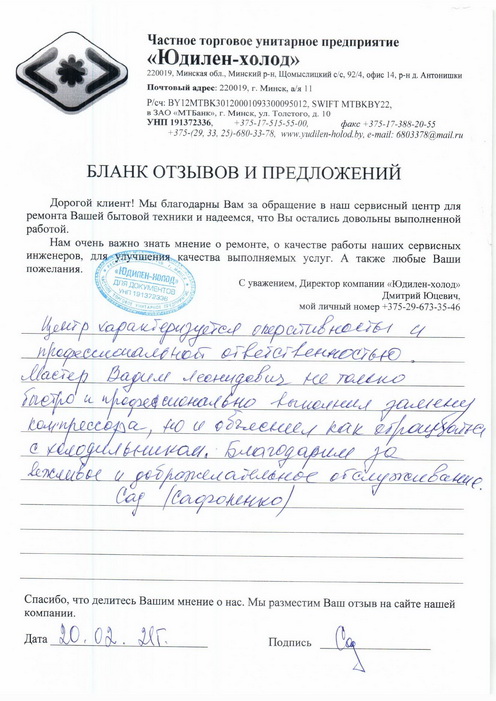 Частное торговое унитарное предприятие
«Юдилен-холод»
220019, Минская обл., Минский р-н, Щомыслицкий с/с, 92/4, офис 14, р-н д. Антонишки
Почтовый адрес: 220019, г. Минск, а/я 11
Р/сч: BY12MTBK30120001093300095012, SWIFT MTBKBY22,
в ЗАО «МТБанк», г. Минск, ул. Толстого, д. 10
УНП 191372336, +375-17-515-55-00, факс +375-17-388-20-55
+375-(29, 33, 25)-680-33-78, www.yudilen-holod.by, e-mail: 6803378@mail.ru
БЛАНК ОТЗЫВОВ И ПРЕДЛОЖЕНИЙ
Дорогой клиент! Мы благодарны Вам за обращение в наш сервисный центр для
ремонта Вашей бытовой техники и надеемся, что Вы остались довольны выполненной
работой.
Нам очень важно знать мнение о ремонте, о качестве работы наших сервисных
инженеров, для улучшения качества выполняемых услуг. А также любые Ваши
пожелания.
«Юдилен-холод»
ДЛЯ ДОКУМЕНТОВ
УНП 191372336
С уважением, Директор компании «Юдилен-холод»
Дмитрий Юцевич,
мой личный номер +375-29-673-35-46
Центр характеризуется оперативностью и
профессиональной ответственностью.
Мастер Вадим Леонидович не только
быстро и профессионально выполнил замену
компрессора, но и объяснил как обращаться
с холодильником. Благодарим за
вежливое и доброжелательное обслуживание.
Сад (Сафоненко)
Спасибо, что делитесь Вашим мнение о нас. Мы разместим Ваш отзыв на сайте нашей
компании.
Дата 20.02.21г. Подпись Сад